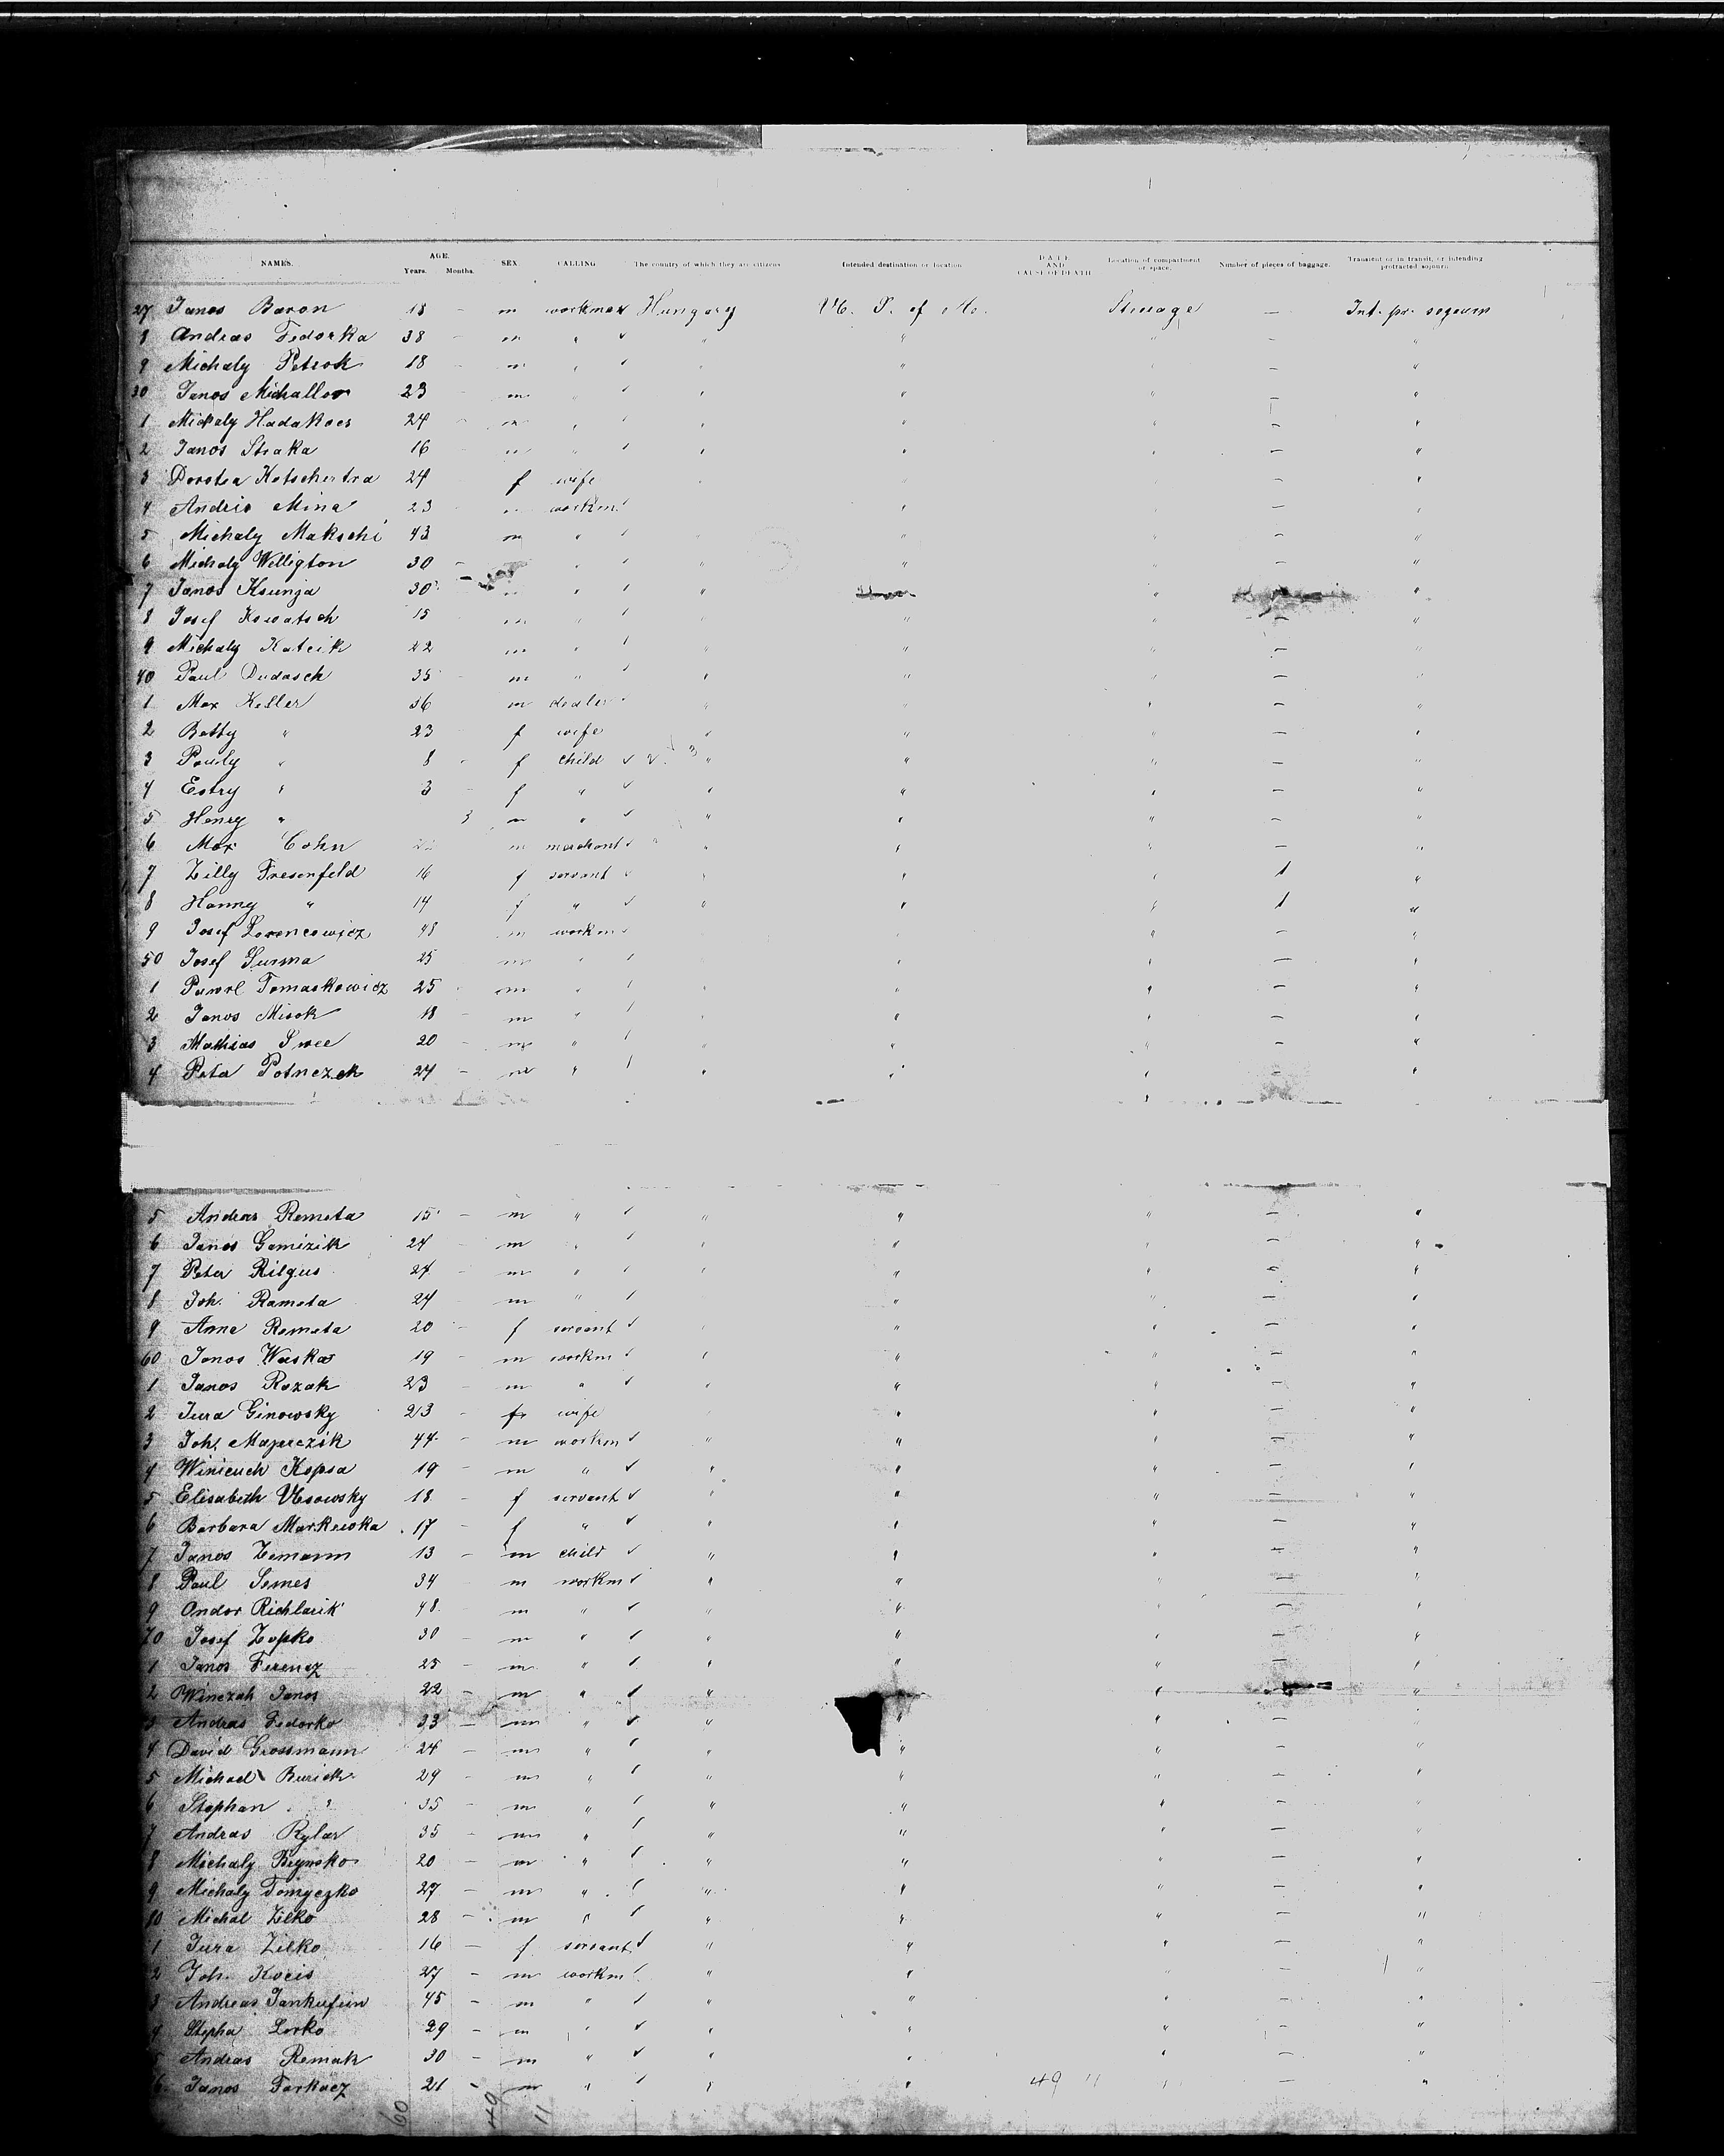 NAMES. AGE. Years. Months. SEX CALLING The country of which they are citizens Intended destination or location DATE AND CAUSE OF DEATH Location of compartment or space. Number of pieces of baggage. Transient or in transit, or intending protracted sojourn.
27 Janos Baron 18 - m workman Hungary U. S. of A. Steerage — Int. pr. sojourn
8 Andras Fedorka 38 - m " " " " — "
9 Michaly Petrok 18 - m " " " " — "
30 Janos Michallor 23 m " " " " — "
1 Michaly Hadakocs 24 - m " " " " — "
2 Janos Straka 16 m " " " " — "
3 Dorotea 24 f wife " " " — "
4 Andris Mina 23 workm " " — "
5 Michaly Makschi 43 m " " " " — "
6 Michaly Willigton 30 - " " " " — "
7 Janos Ksunja 30 " " " "
8 Josef Kowatsch 15 m " " " " — "
9 Michaly Katcik 22 m " " " " — "
40 Paul Dudasch 35 m " " " " — "
1 Max Keller 36 m dealer " " " — "
2 Betty " 23 f wife " " " — "
3 Pauly " 8 - f child " " " — "
4 Estry " 3 - f " " " " — "
5 Henry " 3 m " " " " — "
6 Max Cohn m merchant " " " — "
7 Zilly Fresenfeld 16 f servant " " " 1 "
8 Hanny " 14 f " " " " 1 "
9 Josef Lorencowicz 48 m workm " " — "
50 Josef Surma 25 m " " " — "
1 Pawel Tomaskowicz 25 m " " " " — "
2 Janos Misok 18 - m " " " — "
3 Mathias Swee 20 - m " " " " — "
4 Peter Potnczek 24 - m " " " " — "
5 Andras Remeta 15 - m " " " " — "
6 Janos Gamizik 24 - m " " " " — "
7 Peter Rilgus 24 - m " " " " "
8 Joh. Rameta 24 m " " " — "
9 Anna Remeta 20 - f servant " " " — "
60 Janos Waska 19 - m workm " " " — "
1 Janos Rozak 23 - m " " " " — "
2 Jura Ginowsky 23 - f wife " " — "
3 Joh. 44 - m workm " " " — "
4 Kopsa 19 - m " " " " — "
5 Elisabeth 18 - f servant " " " — "
6 Barbara Markewka 17 - f " " " " — "
7 Janos Zemann 13 - m child " " " — "
8 Paul Semes 34 - m workm " " " — "
9 Andor Richlarik 48 m " " " " — "
70 Josef Zopko 30 - m " " " — "
1 Janos Ferencz 25 - m " " " " — "
2 Winczah Janos 22 - m " " " " "
3 Andras Fedorko 33 - m " " " " — "
4 David Grossmann 24 - m " " " " — "
5 Michael Burich 29 - m " " " " — "
6 Stephan " 35 - m " " " " — "
7 Andras Rylar 35 - m " " " " — "
8 Michaly 20 - m " " " " — "
9 Michaly Tomyczko 27 - m " " " " — "
80 Michal Zilko 28 - m " " " " — "
1 Jura Zilko 16 - f servant " " " — "
2 Joh. Kocis 27 - m workm " " " — "
3 Andreas 45 - m " " " " — "
4 Stepha Lorko 29 - m " " " " — "
5 Andras Remak 30 - m " " " " — "
6 Janos Farkacz 21 - m " " " 49 11 " — "
60 49 11